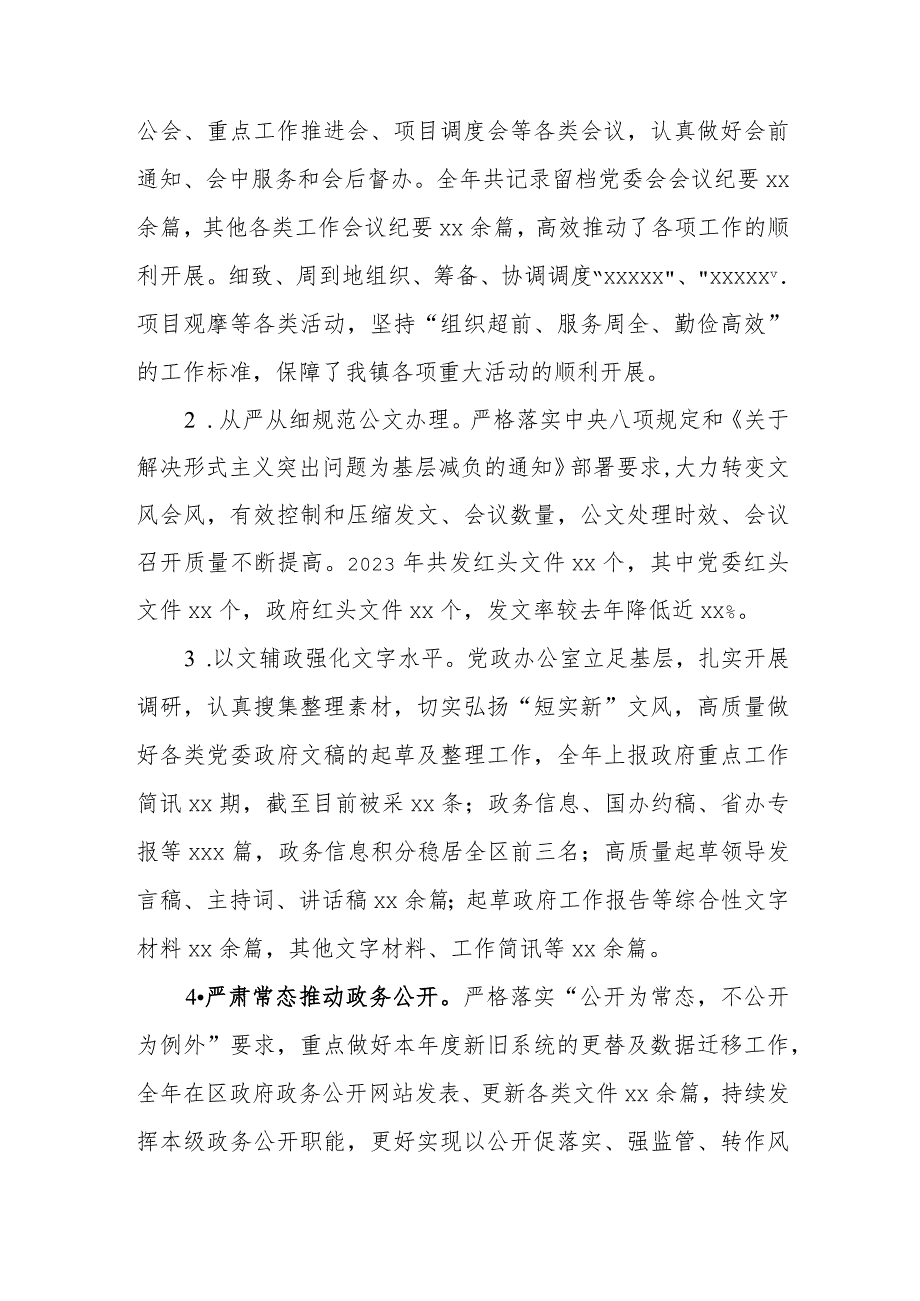 公会、重点工作推进会、项目调度会等各类会议，认真做好会前
通知、会中服务和会后督办。全年共记录留档党委会会议纪要xx
余篇，其他各类工作会议纪要xx余篇，高效推动了各项工作的顺
利开展。细致、周到地组织、筹备、协调调度“XXXXX"、"XXXXXᵛ.
项目观摩等各类活动，坚持“组织超前、服务周全、勤俭高效”
的工作标准，保障了我镇各项重大活动的顺利开展。
2 .从严从细规范公文办理。严格落实中央八项规定和《关于
解决形式主义突出问题为基层减负的通知》部署要求,大力转变文
风会风，有效控制和压缩发文、会议数量，公文处理时效、会议
召开质量不断提高。2023年共发红头文件xx个，其中党委红头
文件xx个，政府红头文件xx个，发文率较去年降低近xx%。
3 .以文辅政强化文字水平。党政办公室立足基层，扎实开展
调研，认真搜集整理素材，切实弘扬“短实新”文风，高质量做
好各类党委政府文稿的起草及整理工作，全年上报政府重点工作
简讯xx期，截至目前被采xx条；政务信息、国办约稿、省办专
报等xxx篇，政务信息积分稳居全区前三名；高质量起草领导发
言稿、主持词、讲话稿xx余篇；起草政府工作报告等综合性文字
材料xx余篇，其他文字材料、工作简讯等xx余篇。
4•严肃常态推动政务公开。严格落实“公开为常态，不公开
为例外”要求，重点做好本年度新旧系统的更替及数据迁移工作，
全年在区政府政务公开网站发表、更新各类文件xx余篇，持续发
挥本级政务公开职能，更好实现以公开促落实、强监管、转作风